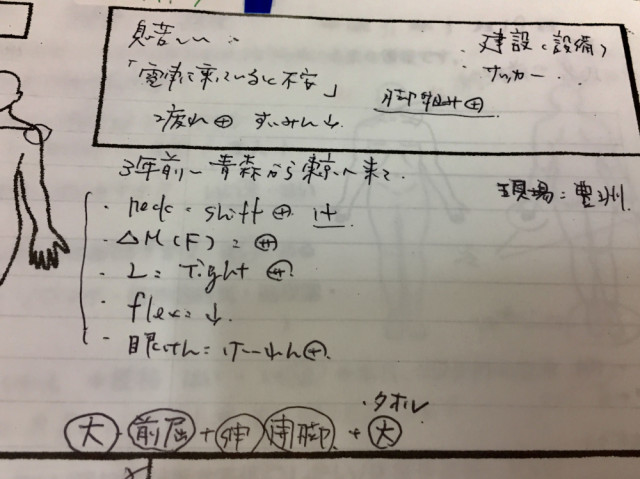 息苦しい
・建設(設備)
・サッカー
「電車に乗っていると不安」
脚組み⊕
疲れ⊕ すいみん↓
3年前〜青森から東京へ来て
現場:豊洲
・neck: shift ⊕ it
・△M(F): ⊕
・L: Tight
・flex: ↓
・眼けん: けいれん⊕
・タオル
大・前屈+伸 脚+大